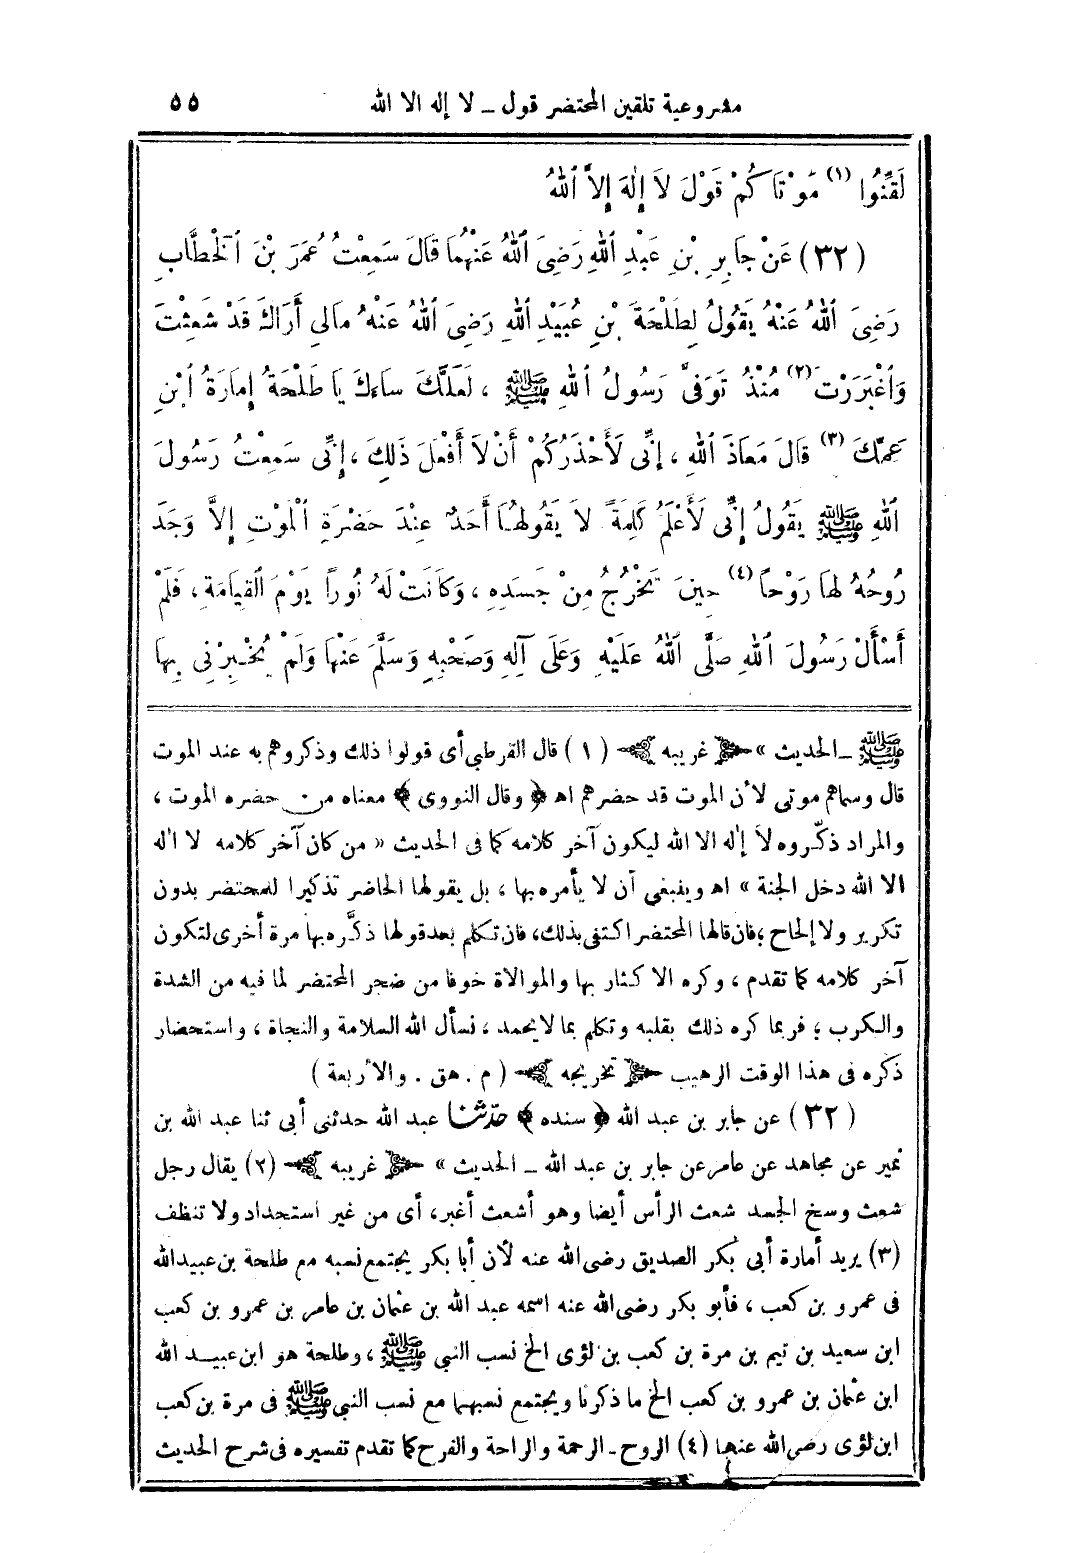 مشروعية تلقين المحتضر قول ــ لا إله الا الله ٥٥
لَقِّنُوا (١) مَوْتَاكُمْ قَوْلَ لاَ إِلٰهَ إِلاَّ ٱللهُ
(٣٢) عَنْ جَابِرِ بْنِ عَبْدِ ٱللهِ رَضِىَ ٱللهُ عَنْهُمَا قَالَ سَمِعْتُ عُمَرَ بْنَ ٱلْخَطَّابِ
رَضِىَ ٱللهُ عَنْهُ يَقُولُ لِطَلْحَةَ بْنِ عُبَيْدِ ٱللهِ رَضِىَ ٱللهُ عَنْهُ مالى أَرَاكَ قَدْ شَعِثْتَ
وَٱغْبَرَرْتَ (٢) مُنْذُ تَوَفىَّ رَسُولُ ٱللهِ ﷺ ، لَعَلَّكَ سَاءَكَ يَا طَلْحَةُ إِمَارَةُ ٱبْنِ
عَمِّكَ (٣) قَالَ مَعَاذَ ٱللهِ ، إِنِّى لَأَحْذَرُكُمْ أَنْ لاَ أَفْعَلَ ذَلِكَ ، إِنِّى سَمِعْتُ رَسُولَ
ٱللهِ ﷺ يَقُولُ إِنِّى لَأَعْلَمُ كَلِمَةً لاَ يَقُولُهَا أَحَدٌ عِنْدَ حَضْرَةِ ٱلْمَوْتِ إِلاَّ وَجَدَ
رُوحُهُ لَهَا رَوْحًا (٤) حِينَ تَخْرُجُ مِنْ جَسَدِهِ ، وَكَانَتْ لَهُ نُورًا يَوْمَ ٱلْقِيَامَةِ ، فَلَمْ
أَسْأَلْ رَسُولَ ٱللهِ صَلَّى ٱللهُ عَلَيْهِ وَعَلَى آلِهِ وَصَحْبِهِ وَسَلَّمَ عَنْهَا وَلَمْ يُخْبِرْنِى بِهَا
ﷺ ــ الحديث » غريبه (١) قال القرطبى أى قولوا ذلك وذكروهم به عند الموت
قال وسماهم موتى لأن الموت قد حضرهم اه ﴿ وقال النووى ﴾ معناه من حضره الموت ،
والمراد ذكّروه لا إله الا الله ليكون آخر كلامه كما فى الحديث « من كان آخر كلامه لا اله
الا الله دخل الجنة » اه وينبغى أن لا يأمره بها ، بل يقولها الحاضر تذكيرا للمحتضر بدون
تكرير ولا إلحاح ؛ فان قالها المحتضر اكتفى بذلك، فان تكلم بعد قولها ذكَّره بها مرة أخرى لتكون
آخر كلامه كما تقدم ، وكره الاكثار بها والموالاة خوفا من ضجر المحتضر لما فيه من الشدة
والكرب ؛ فربما كره ذلك بقلبه وتكلم بما لا يحمد ، نسأل الله السلامة والنجاة ، واستحضار
ذكره فى هذا الوقت الرهيب تخريجه ( م . هق . والأربعة )
(٣٢) عن جابر بن عبد الله ﴿ سنده ﴾ حدّثنا عبد الله حدثنى أبى ثنا عبد الله بن
نمير عن مجاهد عن عامر عن جابر بن عبد الله ــ الحديث » غريبه (٢) يقال رجل
شعث وسخ الجسد شعث الرأس أيضا وهو أشعث أغبر، أى من غير استحداد ولا تنظف
(٣) يريد أمارة أبى بكر الصديق رضى الله عنه لأن أبا بكر يجتمع نسبه مع طلحة بن عبيد الله
فى عمرو بن كعب ، فأبو بكر رضى الله عنه اسمه عبد الله بن عثمان بن عامر بن عمرو بن كعب
ابن سعيد بن تيم بن مرة بن كعب بن لؤى الخ نسب النبى ﷺ ، وطلحة هو ابن عبيد الله
ابن عثمان بن عمرو بن كعب الخ ما ذكرنا ويجتمع نسبهما مع نسب النبى ﷺ فى مرة بن كعب
ابن لؤى رضى الله عنهما (٤) الروح ــ الرحمة والراحة والفرح كما تقدم تفسيره فى شرح الحديث